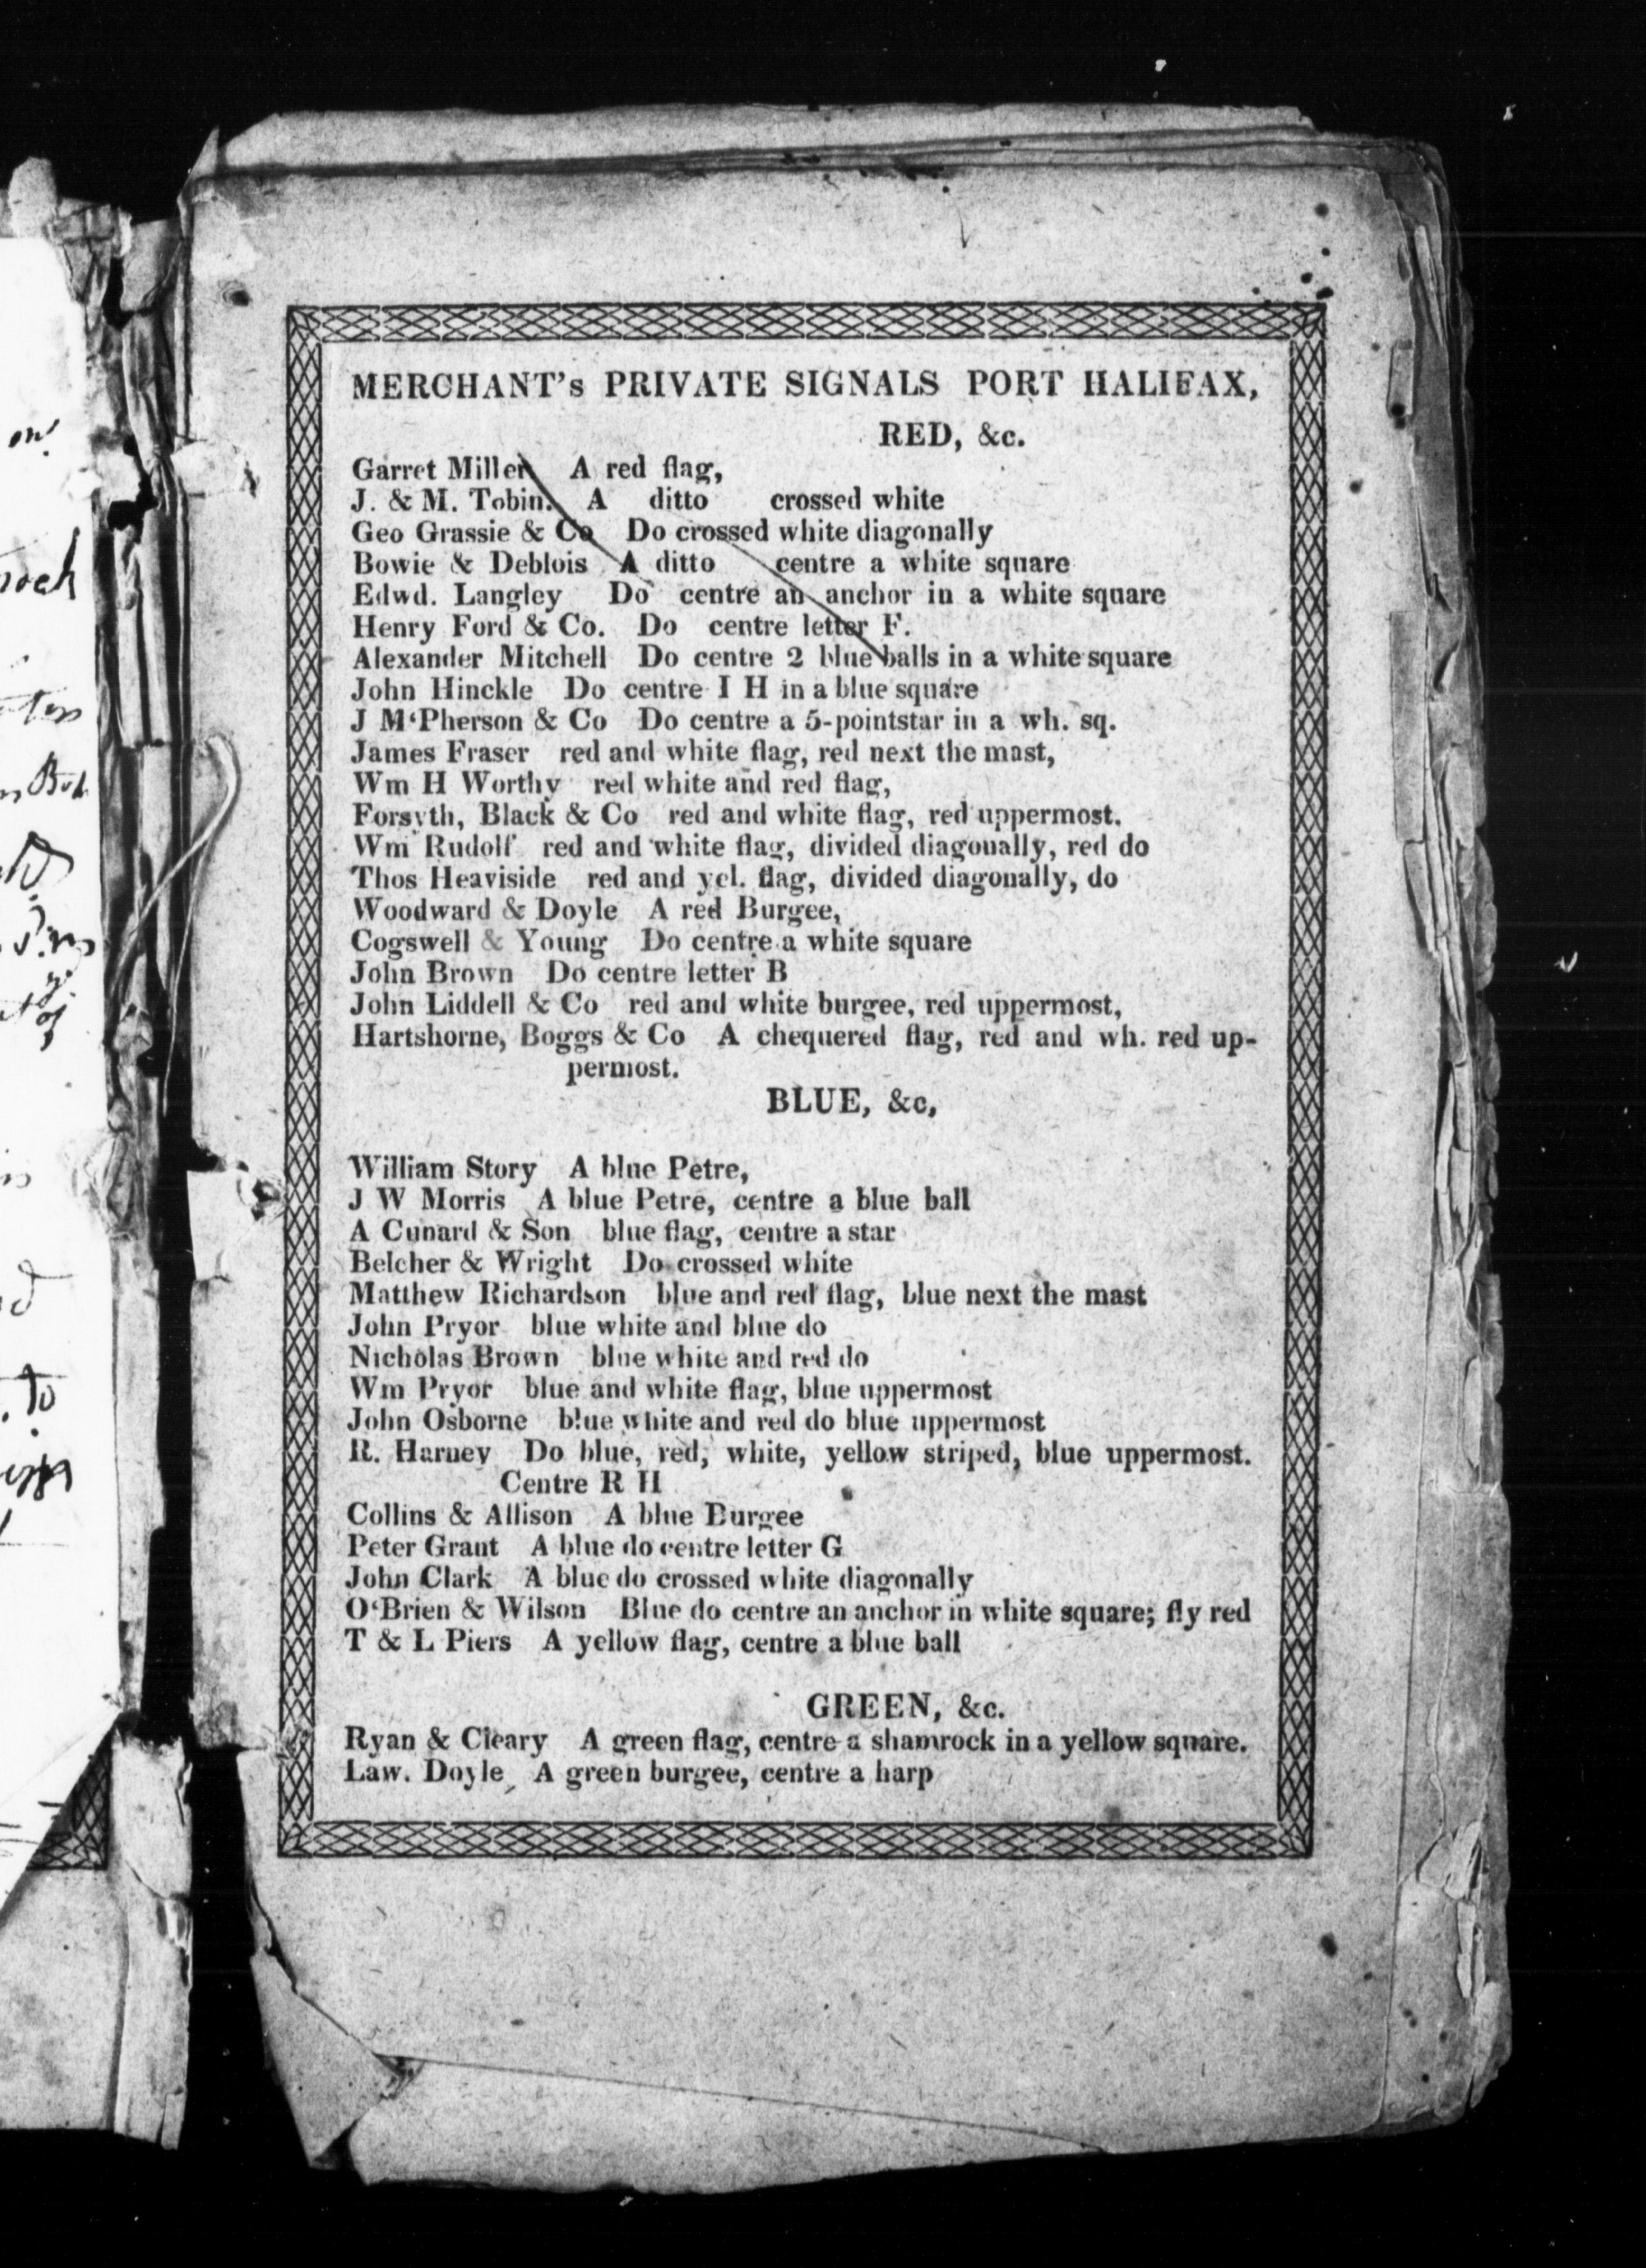 MERCHANT's PRIVATE SIGNALS PORT HALIFAX,
RED, &c.
Garret Miller A red flag,
J. & M. Tobin. A ditto crossed white
Geo Grassie & Co Do crossed white diagonally
Bowie & Deblois A ditto centre a white square
Edwd. Langley Do centre an anchor in a white square
Henry Ford & Co. Do centre letter F.
Alexander Mitchell Do centre 2 blue balls in a white square
John Hinckle Do centre I H in a blue square
J M‘Pherson & Co Do centre a 5-pointstar in a wh. sq.
James Fraser red and white flag, red next the mast,
Wm H Worthy red white and red flag,
Forsyth, Black & Co red and white flag, red uppermost.
Wm Rudolf red and white flag, divided diagonally, red do
Thos Heaviside red and yel. flag, divided diagonally, do
Woodward & Doyle A red Burgee,
Cogswell & Young Do centre a white square
John Brown Do centre letter B
John Liddell & Co red and white burgee, red uppermost,
Hartshorne, Boggs & Co A chequered flag, red and wh. red up-
permost.
BLUE, &c,
William Story A blue Petre,
J W Morris A blue Petre, centre a blue ball
A Cunard & Son blue flag, centre a star
Belcher & Wright Do crossed white
Matthew Richardson blue and red flag, blue next the mast
John Pryor blue white and blue do
Nicholas Brown blue white and red do
Wm Pryor blue and white flag, blue uppermost
John Osborne blue white and red do blue uppermost
R. Harney Do blue, red, white, yellow striped, blue uppermost.
Centre R H
Collins & Allison A blue Burgee
Peter Grant A blue do centre letter G
John Clark A blue do crossed white diagonally
O‘Brien & Wilson Blue do centre an anchor in white square; fly red
T & L Piers A yellow flag, centre a blue ball
GREEN, &c.
Ryan & Cleary A green flag, centre a shamrock in a yellow square.
Law. Doyle A green burgee, centre a harp